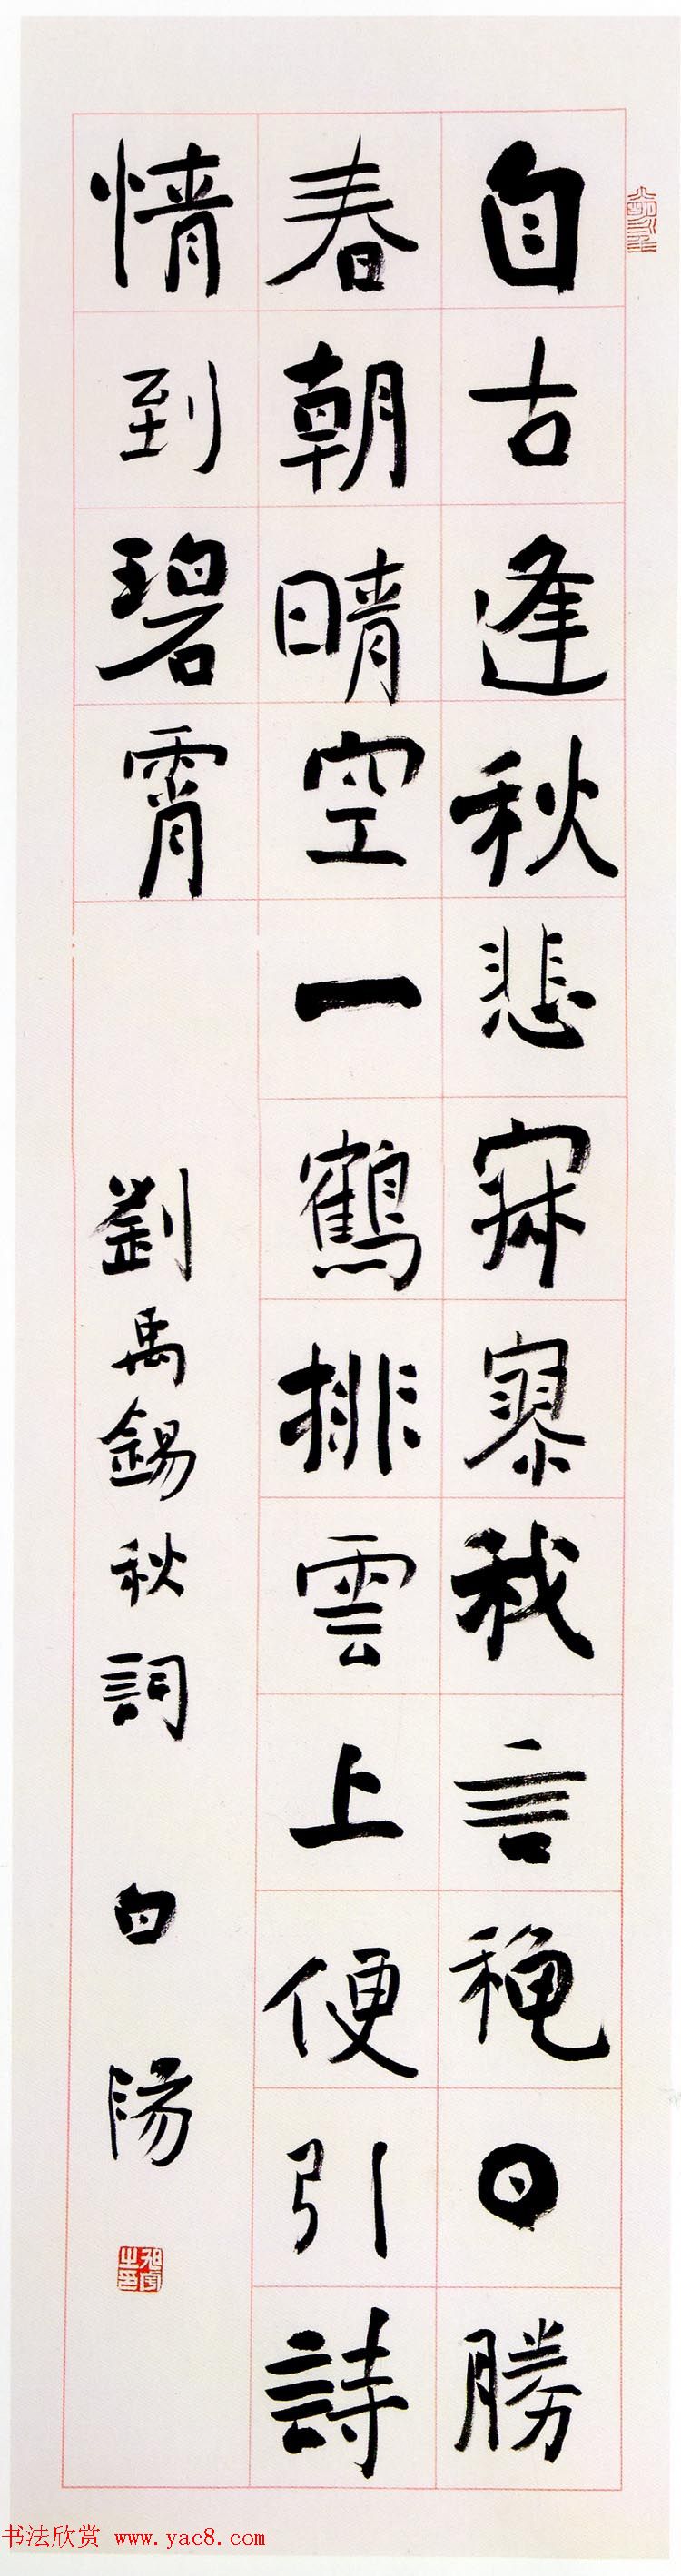 自古逢秋悲寂寥我言秋日勝
春朝晴空一鶴排雲上便引詩
情到碧霄
劉禹錫秋詞 白陽
书法欣赏 www.yac8.com